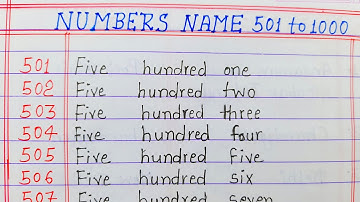 NUMBERS NAME 501 to 1000
501 Five hundred one
502 Five hundred two
503 Five hundred three
504 Five hundred four
505 Five hundred five
506 Five hundred six
507 Five hundred seven